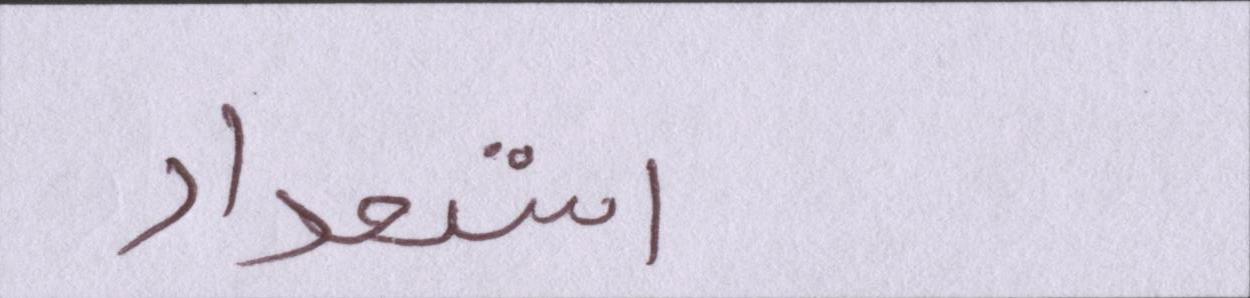 استعداد